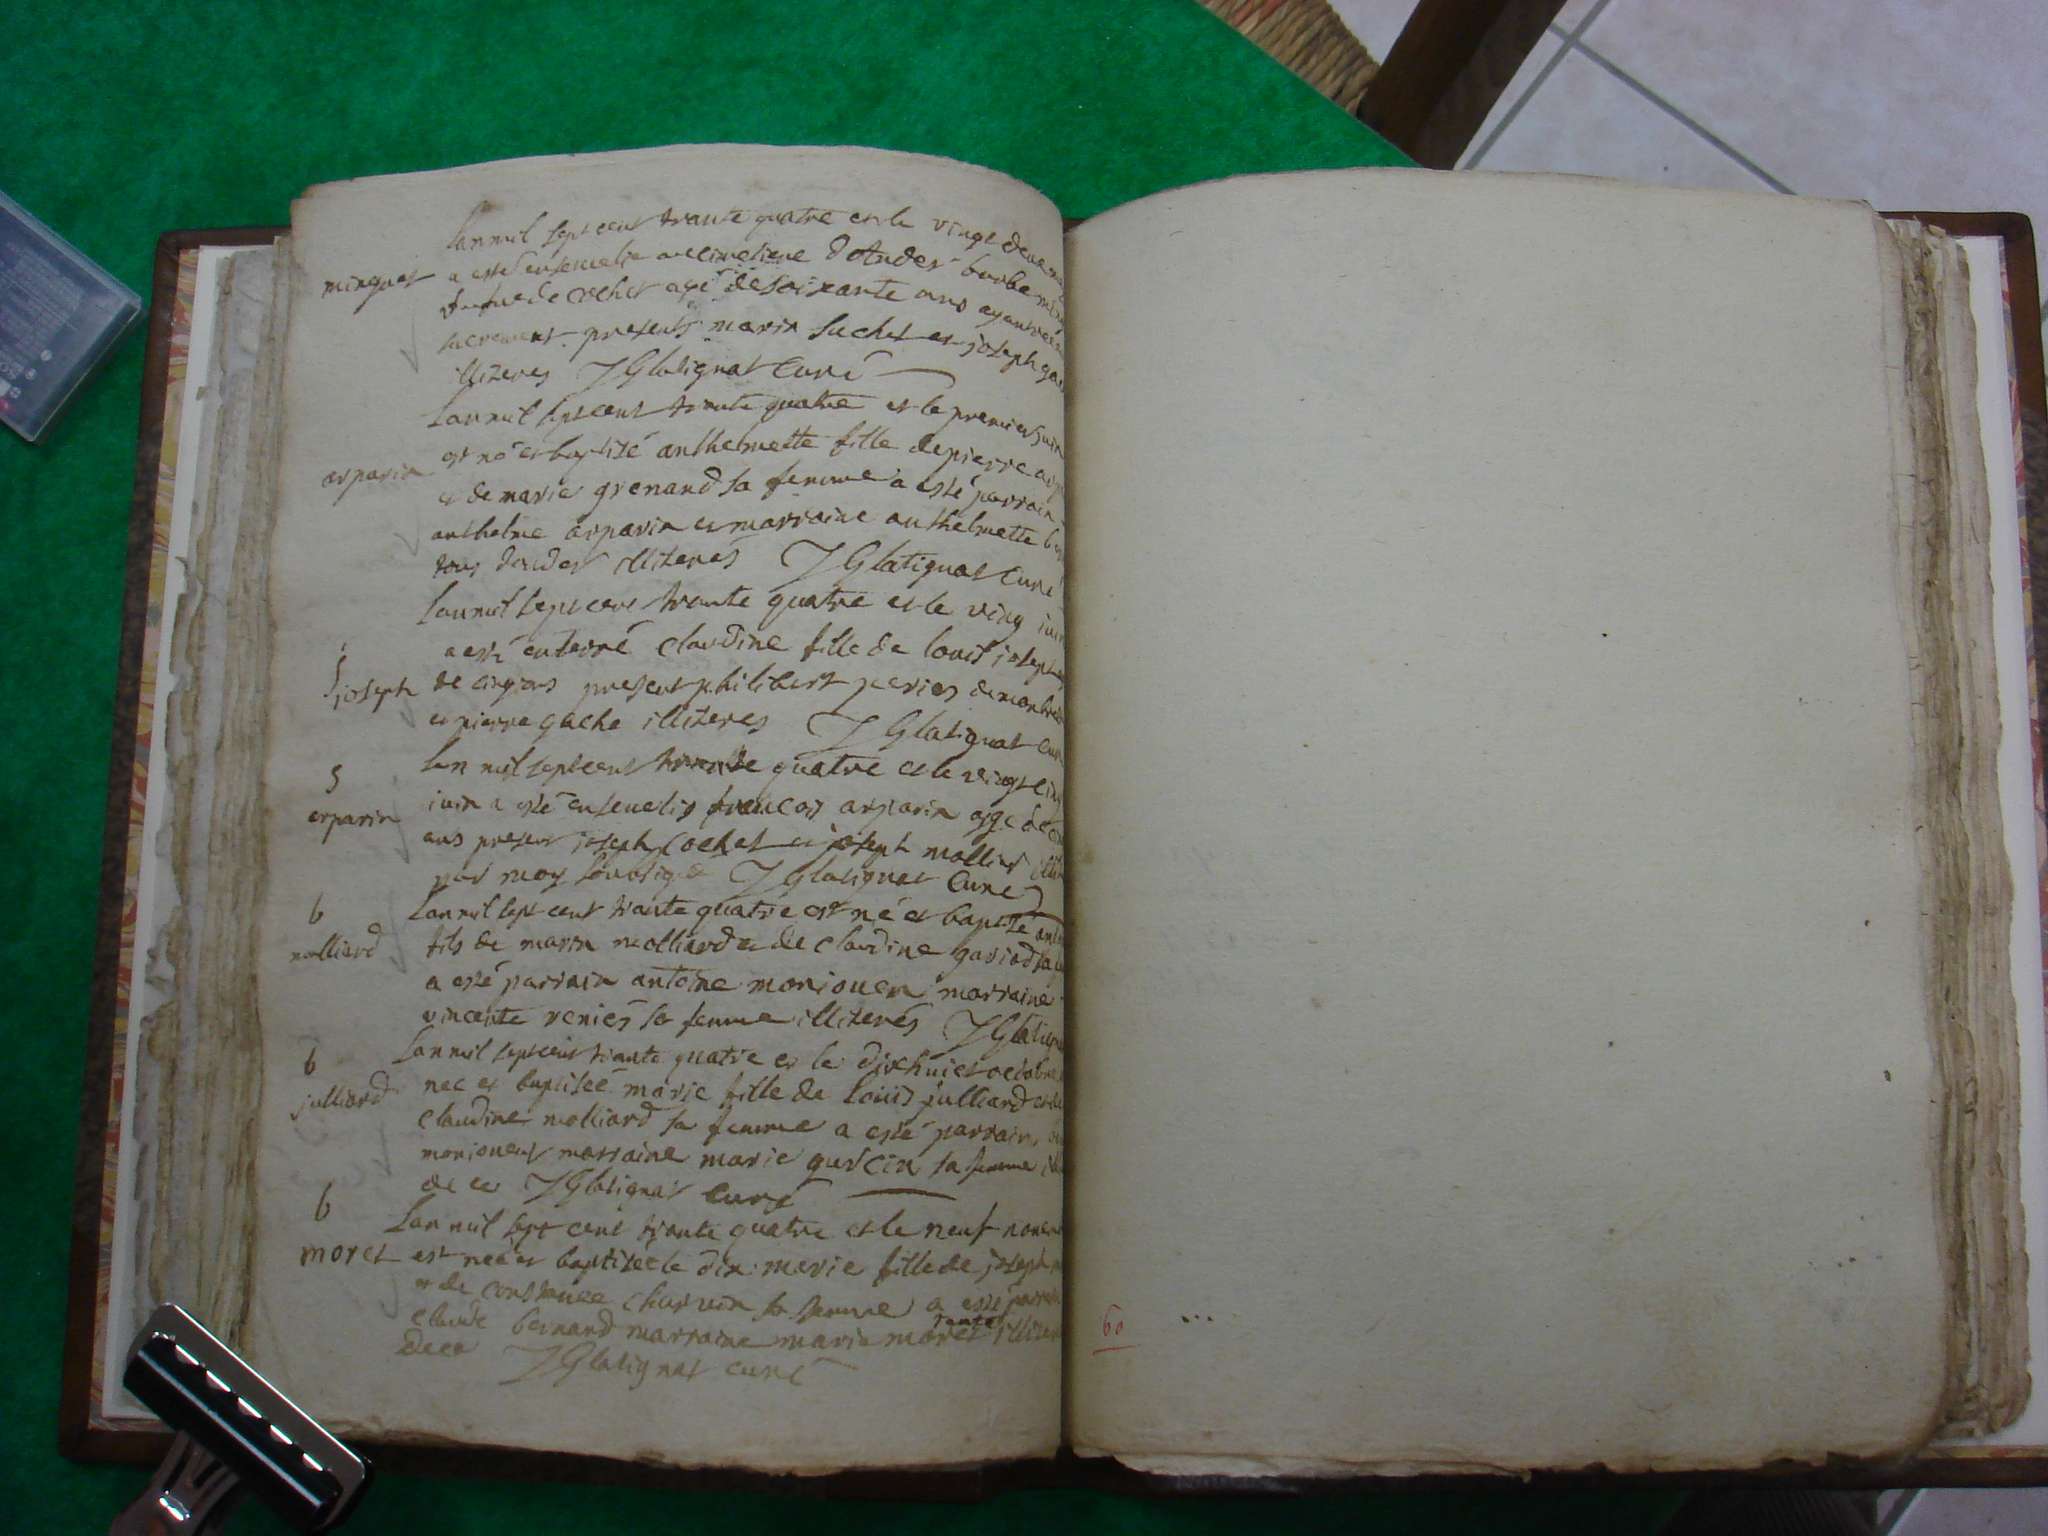 lan mil sept cent trante quatre et le vingt deux
minguet
a esté enseuelie au cimetiere d'Andert barbe
de cochet agé de soixante ans ayant
sacrement presents marin suchet et joseph
illiteres J Glatignat Curé
lan mil sept cent trante quatre et le premier juin
est né et baptisé anthelmette fille de pierre
arparin
et de marie grenand sa femme a esté parrain
anthelme arparin et marraine anthelmette
tous d'andert illiterés J Glatignat Curé
lan mil sept cent trante quatre et le ving juin
a esté enterré claudine fille de louis joseph
joseph
de cinq ans present philibert perier de
et pierre gache illiteres J Glatignat curé
lan mil sept cent trante quatre et le vingt cinq
S
arparin
juin a esté enseuelis francois arparin agé de
ans present joseph cochet et joseph mollier
par moy soubsigné J Glatignat Curé
b
lan mil sept cent trante quatre est né et baptisé
molliard
fils de marin molliard et de claudine gariod sa
a esté parrain antoine moriouen marraine
vincente renier sa femme illiterés J Glatignat
b
lan mil sept cent trante quatre et le dixhuict octobre
julliard
nee et baptisée marie fille de louis julliard et de
claudine molliard sa femme a esté parrain
moriouent marraine marie gurcin sa femme
de ce J Glatignat curé
b
lan mil sept cent trante quatre et le neuf
moret
est neé et baptiseé le dix marie fille de joseph
et de constance charuin sa femme a esté
claude bernard marraine marie moret tante
de ce J Glatignat curé
60